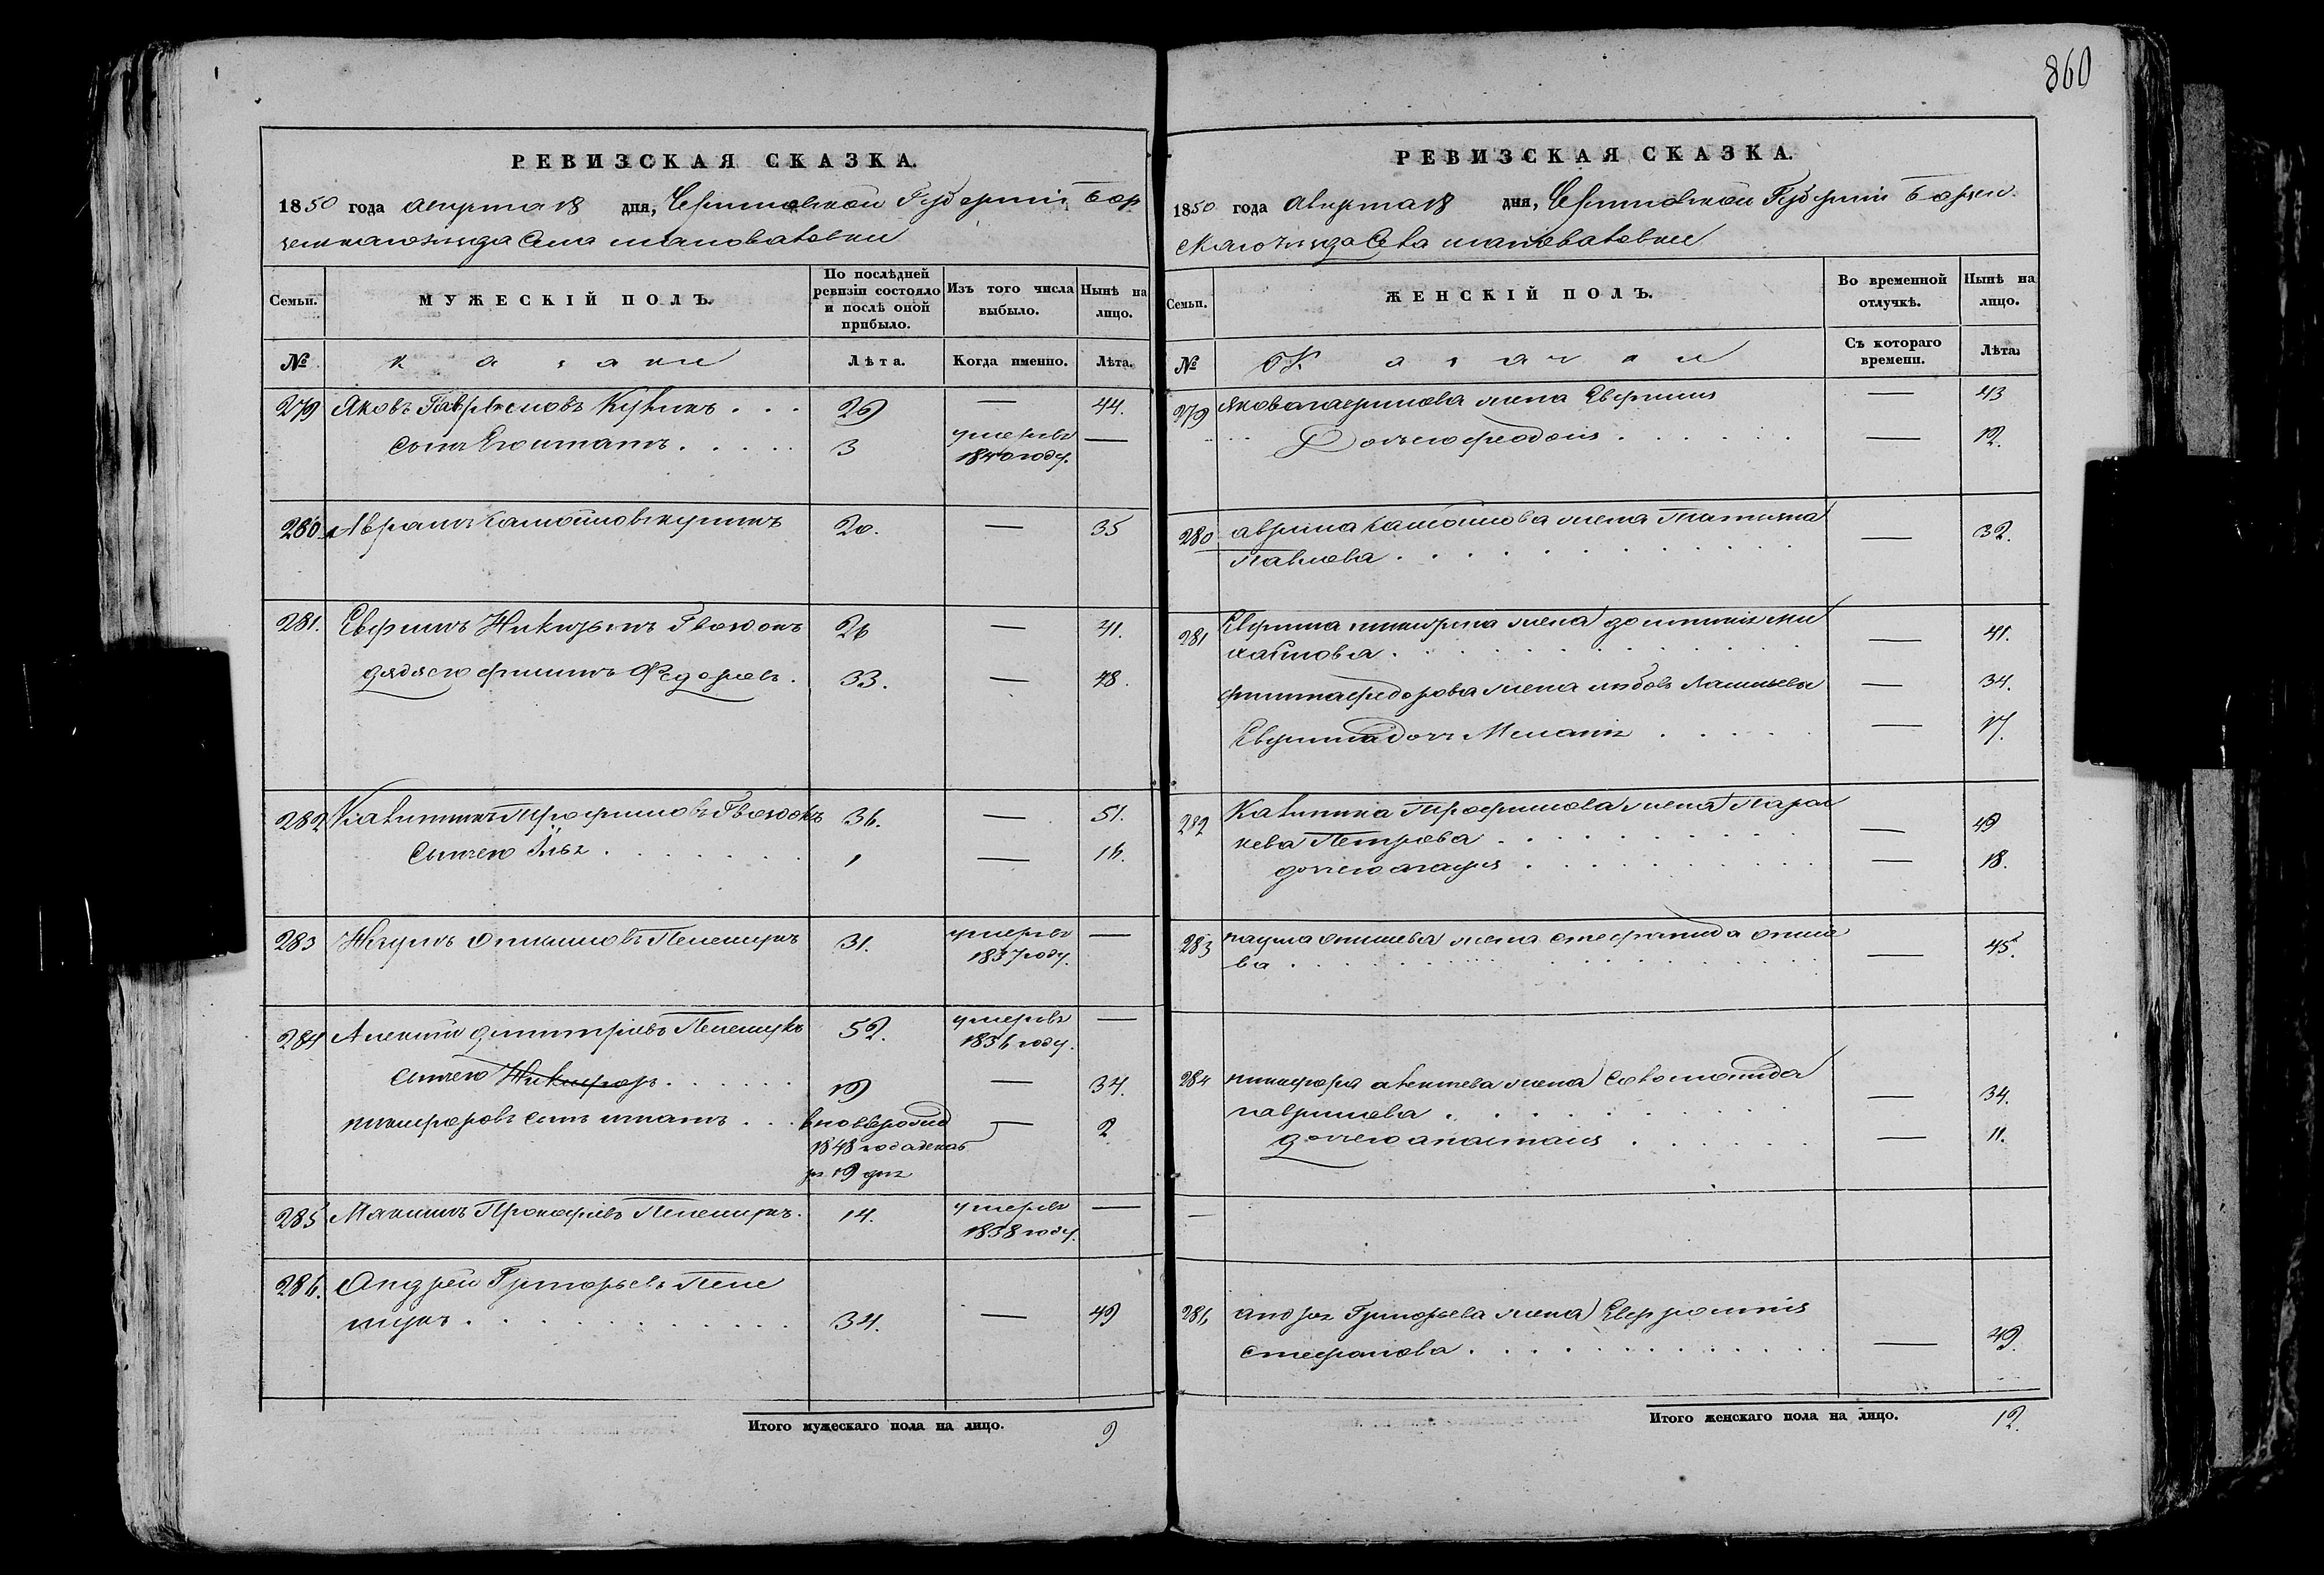 860
РЕВИЗСКАЯ СКАЗКА.
1850 года августа 18 дня, Черниговской Губернии, Бор
зенскаго уезда Села
Семьи.
МУЖЕСКІЙ ПОЛЪ.
По послѣдней ревизіи состояло и послѣ оной прибыло.
Изъ того числа выбыло.
Нынѣ на лицо.
№
казаки
Лѣта.
Когда именно.
Лѣта.
279 Яковъ Гавриловъ . . . 29 — 44.
сынъ . . . . . 3 умеръ 1840 году. —
280. Аврамъ Самойловъ 20. — 35
281. Евфимъ Никитинъ Гвоздокъ 26 — 41.
дядя его Филипъ Федоровъ . 33. — 48.
282 Калиникъ Трофимовъ Гвоздокъ 36. — 51.
сынъ его Илья . . . . . . . 1 — 16.
283 Наумъ Пелешукъ 31. умеръ 1837 году. —
284 Алексей Дмитріевъ Пелешукъ 52. умеръ 1836 году. —
сынъ его Никифоръ . . . . . . 19 — 34.
Никифоровъ сынъ Игнатъ . . . вновь рожд 1848 года декаб 19 дня — 2
285 Максимъ Прокофіевъ Пелешукъ. 14. умеръ 1838 году. —
286. Андрей Григорьевъ Пеле
шукъ . . . . . . . . . . . . 34. — 49
Итого мужескаго пола на лицо. 9
РЕВИЗСКАЯ СКАЗКА.
1850 года августа 18 дня, Черниговской Губернии Борзен
скаго уезда Села
Семьи.
ЖЕНСКІЙ ПОЛЪ.
Во временной отлучкѣ.
Нынѣ на лицо.
№
казачки
Съ котораго времени.
Лѣта.
279 Якова Гаврилова жена — 43
Дочь его Феодосія . . . . . . — 12.
280 Аврама Самойлова жена Татьяна
Павлова . . . . . . . . . . . . — 32.
281 Евфима Никитина жена Домникія Ми
хайлова . . . . . . . . . . . . — 41.
Филипа Федорова жена Любовь — 34.
Евфима дочь Меланія . . . . . — 17.
282 Калиника Трофимова жена Парас
кева Петрова . . . . . . . . . . — 49
дочь его Агафія . . . . . . . . . . — 18.
283 Наума жена Стефанида
ва . . . . . . . . . . . . . . . . . — 45.
284 Никифора Алексеева жена Соломонида
Гаврилова . . . . . . . . . . — 34.
дочь его Анастасія . . . . . . — 11.
—
286 Андрея Григорьева жена Евфросинія
Стефанова . . . . . . . . . . . . . — 49.
Итого женскаго пола на лицо. 12.